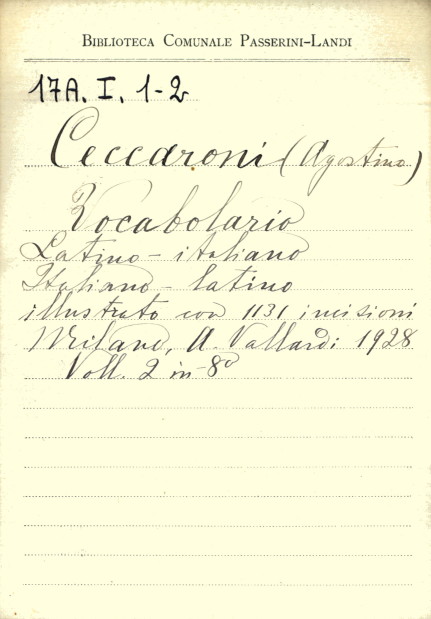 BIBLIOTECA COMUNALE PASSERINI-LANDI
17A. I. 1-2
Ceccaroni (Agostino)
Vocabolario
Latino - italiano
Italiano - latino
illustrato con 1131 incisioni
Milano, A. Vallardi 1928
Voll. 2 in-8º